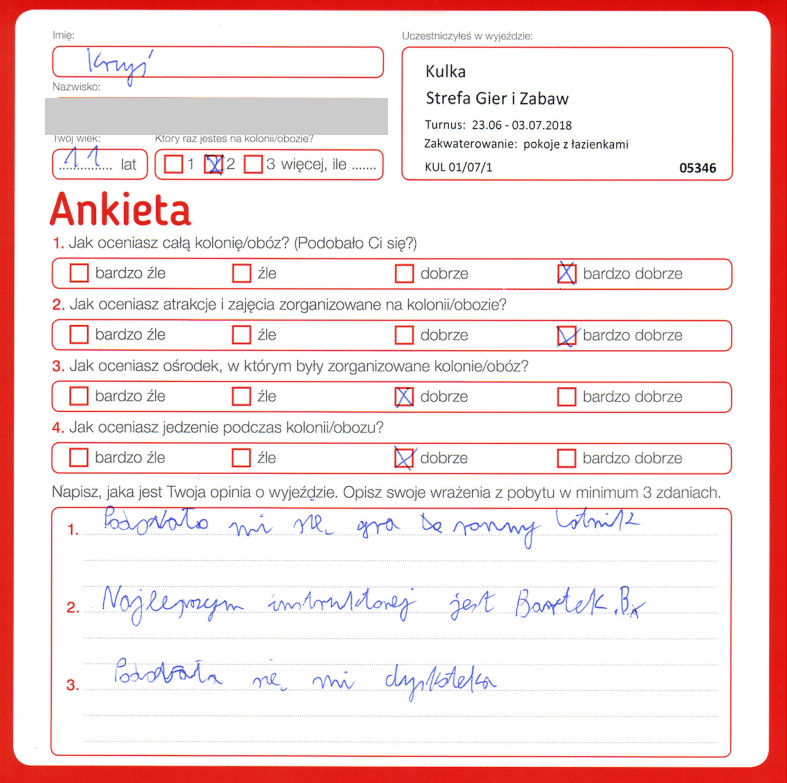 Imię:
Uczestniczyłeś w wyjeździe:
Krzyś
Kulka
Strefa Gier i Zabaw
Turnus: 23.06 - 03.07.2018
Zakwaterowanie: pokoje z łazienkami
KUL 01/07/1 05346
Nazwisko:
Twój wiek: Który raz jesteś na kolonii/obozie?
11 lat 1 2 3 więcej, ile .......
Ankieta
1. Jak oceniasz całą kolonię/obóz? (Podobało Ci się?)
bardzo źle źle dobrze bardzo dobrze
2. Jak oceniasz atrakcje i zajęcia zorganizowane na kolonii/obozie?
bardzo źle źle dobrze bardzo dobrze
3. Jak oceniasz ośrodek, w którym były zorganizowane kolonie/obóz?
bardzo źle źle dobrze bardzo dobrze
4. Jak oceniasz jedzenie podczas kolonii/obozu?
bardzo źle źle dobrze bardzo dobrze
Napisz, jaka jest Twoja opinia o wyjeździe. Opisz swoje wrażenia z pobytu w minimum 3 zdaniach.
1. Podobało mi się gra ranny lotnik
2. Najlepszym instruktorej jest Bartek.B
3. Podobała się mi dyskoteka